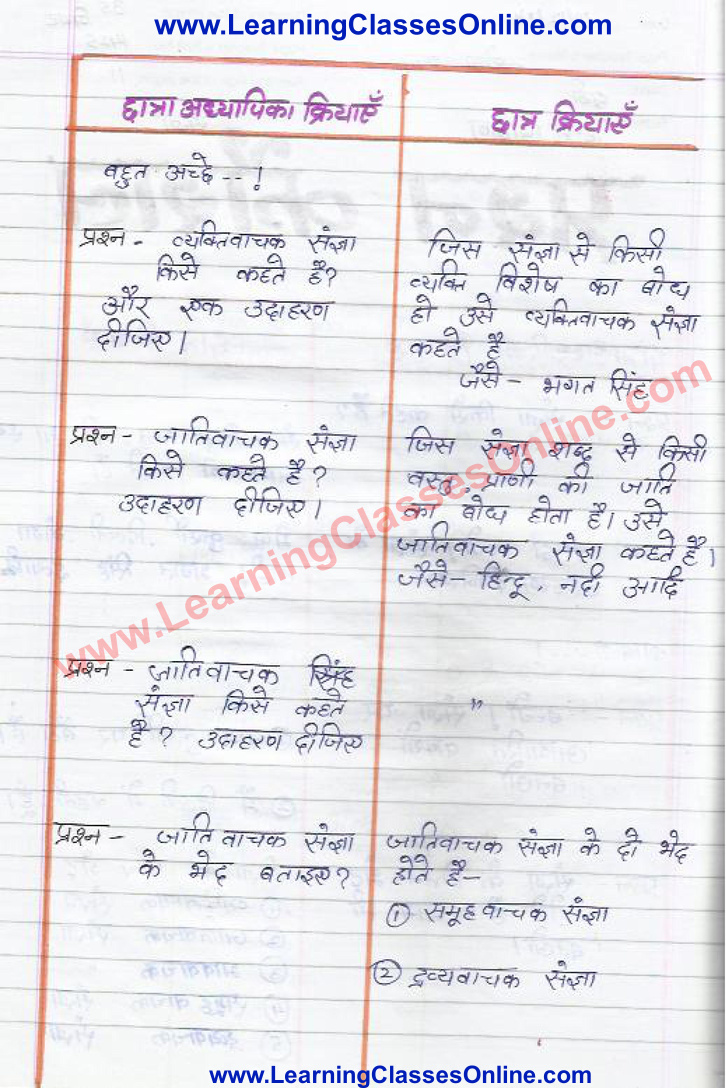 www.LearningClassesOnline.com
छात्रा अध्यापिका क्रियाएँ
छात्र क्रियाएँ
बहुत अच्छे --!
प्रश्न - व्यक्तिवाचक संज्ञा
किसे कहते है?
और एक उदाहरण
दीजिए।
जिस संज्ञा से किसी
व्यक्ति विशेष का बोध
हो उसे व्यक्तिवाचक संज्ञा
कहते है
जैसे - भगत सिंह
प्रश्न - जातिवाचक संज्ञा
किसे कहते है?
उदाहरण दीजिए।
जिस संज्ञा शब्द से किसी
वस्तु, प्राणी की जाति
का बोध होता है। उसे
जातिवाचक संज्ञा कहते है।
जैसे - हिन्दू, नदी आदि
www.LearningClassesOnline.com
प्रश्न - जातिवाचक
संज्ञा किसे कहते
है? उदाहरण दीजिए
"
प्रश्न - जाति वाचक संज्ञा
के भेद बताइए?
जातिवाचक संज्ञा के दो भेद
होते है-
① समूहवाचक संज्ञा
② द्रव्यवाचक संज्ञा
www.LearningClassesOnline.com